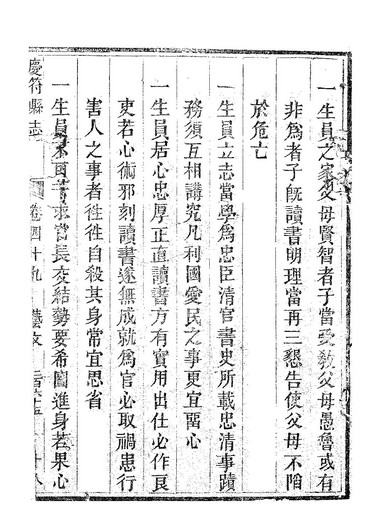 一生員之家父母賢智者子當受教父母愚魯或有
非爲者子既讀書明理當再三懇告使父母不陷
於危亡
一生員立志當學爲忠臣清官書史所載忠清事蹟
務須互相講究凡利國愛民之事更宜留心
一生員居心忠厚正直讀書方有實用出仕必作良
吏若心術邪刻讀書遂無成就爲官必取禍患行
害人之事者徃徃自殺其身常宜思省
一生員不可苦求官長交結勢要希圖進身若果心
慶符縣志
卷四十九
藝文